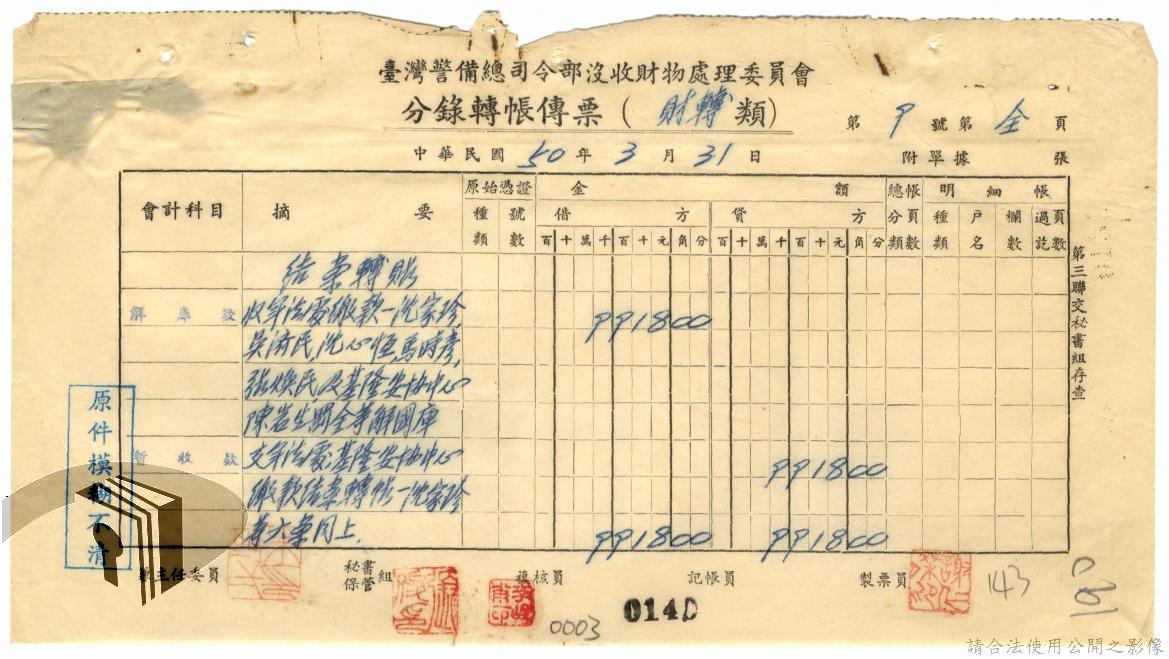 臺灣警備總司令部沒收財物處理委員會
分錄轉帳傳票(財轉類)
第 9 號第 全 頁
中華民國 50 年 3 月 31 日
附單據 張
會計科目 摘要 原始憑證 種類 號數 金額 借方 貸方 總帳 分類 頁數 明細帳 種類 戶名 欄數 過訖 頁數
百十萬千百十元角分 百十萬千百十元角分
結案轉賬
解庫款 收軍法處繳款一沈家珍, 991800
吳濟民,沈心恒,馬時彥,
張煥民及基隆安檢中心
陳岩生罰金等解國庫
暫收款 支軍法處,基隆安檢中心 991800
繳款結案轉帳一沈家珍
等六案同上. 991800 991800
第三聯交秘書組存查
原件模糊不清
兼主任委員 秘書 保管 組 複核員 記帳員 製票員
143
0003
0140
請合法使用公開之影像